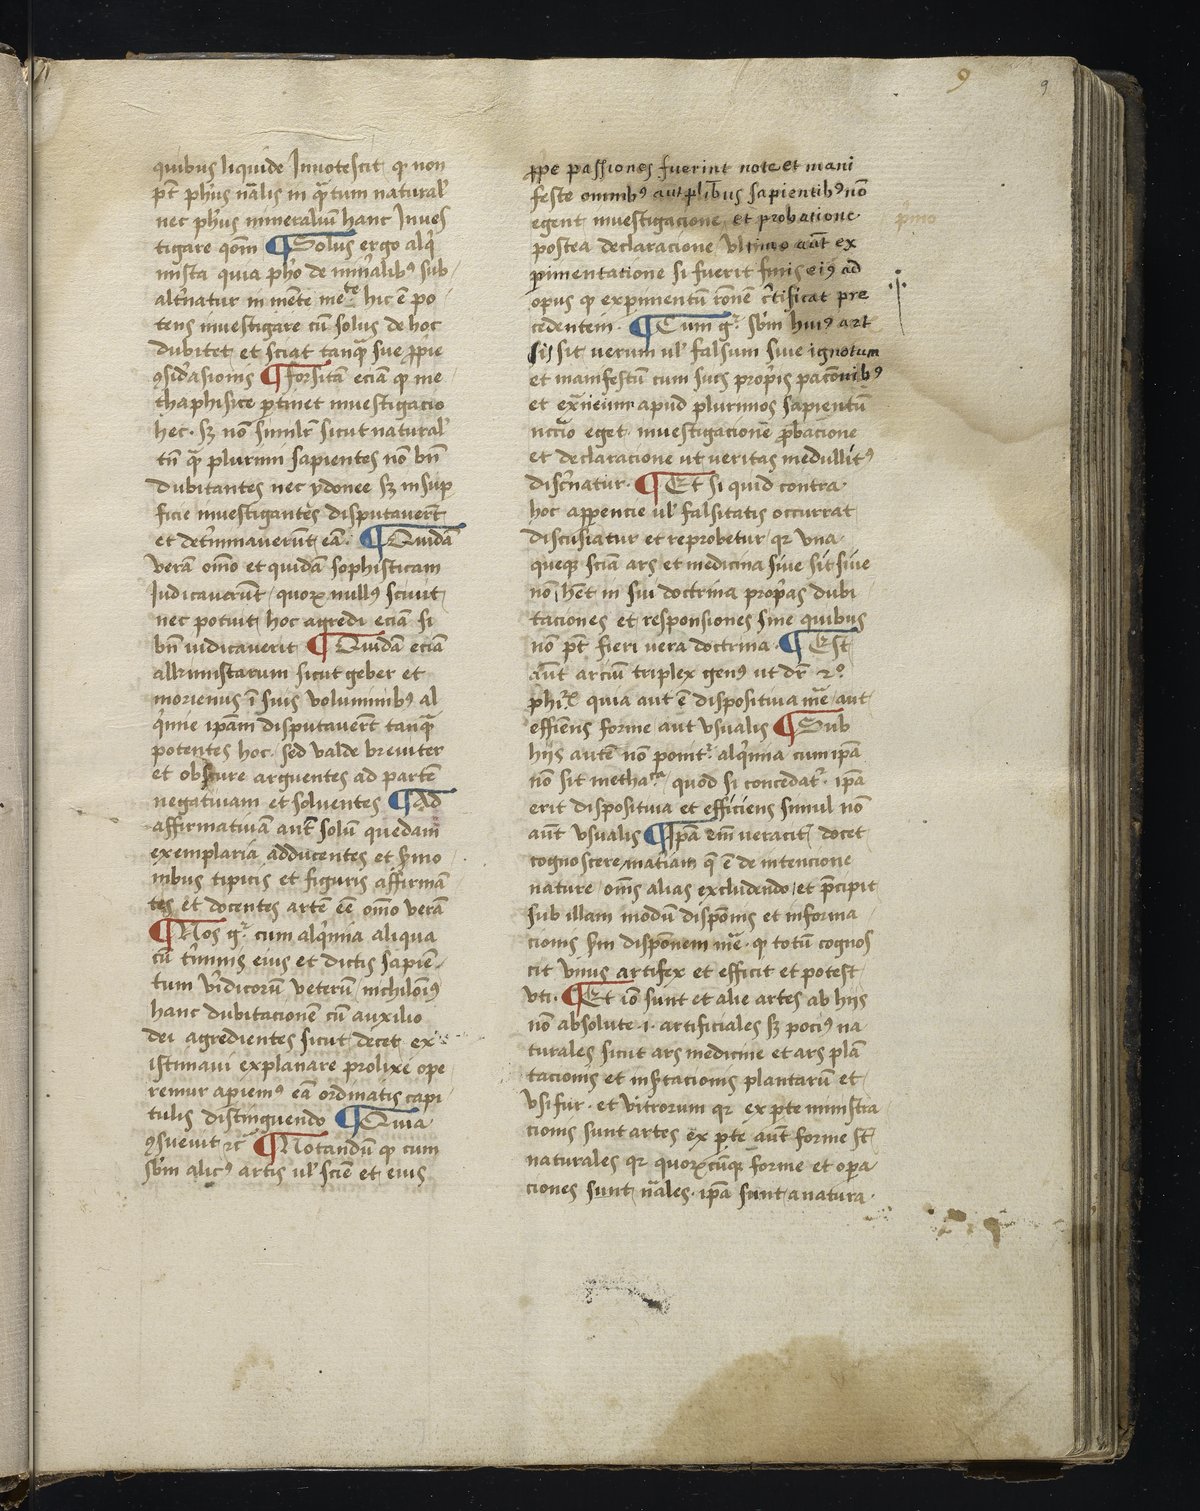 9
9
quibus liquide Innotescit ꝙ non
pt̄ phūs nālis in qͣtum natural̓
nec phūs mineraliū hanc Inues
tigare qōm ¶ Solus ergo alq̓
mista quia pħo de min̓alibꝰ sub
alt̓natur in mēte hic ē po
tens inuestigare cū solus de hoc
dubitet et sciat tanqͣ sue ꝓpie
ꝯsid̓asionis ¶ forsitā eciā ꝙ me
thaphisice ꝑtinet inuestigacio
hec · sꝫ nō simil̓r sicut natural̓
tn̄ qͣ plurimi sapientes nō bn̄
dubitantes nec ydonee sꝫ in suꝑ
ficie inuestigantes disputauerūt
et det̓minauerūt eā · ¶ Quidā
verā om̄o et quidā sophisticam
Iudicauerūt quoꝝ nullꝰ sciuit
nec potuit hoc agredi eciā si
bn̄ iudicauerit ¶ Quidā eciā
alkimistarum sicut geber et
morienus ī suis voluminibꝰ al
q̓mie ipām disputauerūt tanqͣ
potentes hoc · sed valde breuiter
et obscure arguentes ad partē
negatiuam et soluentes ¶ Ad
affirmatiuā aut̄ solū quedam
exemplaria adducentes et s̓mo
nibus tipicis et figuris affirmā
tes et docentes artē eē om̄o verā
¶ Nos gͥ cum alq̓mia aliqua
cū t̓minis eius et dictis sapiē
tum v̓idicorū veterū nichilo͞iꝰ
hanc dubitacionē cū auxilio
dei agredientes sicut decet ex
istimaui explanare prolixe ope
remur aꝑiemꝰ eā ordinatis capi
tulis distinguendo ¶ Quia
ꝯsueuit ⁊c̄ ¶ Notandū ꝙ cum
sb̄m alicꝰ artis ul̓ sciē et eius
ꝓpe passiones fuerint note et mani
feste omnibꝰ aut pl̓ibus sapientibꝰ nō
egent inuestigacione et probatione
postea declaracione vltimo aūt ex
ꝑimentatione si fuerit finis eiꝰ ad
opus ꝙ experimentū rōnē c̓tificat pre
cedentem · ¶ Cum gͥ sb̄m huiꝰ art
is sit verum ul̓ falsum siue ignotum
et manifestū cum suis prop̓is pacōnibꝰ
et apud plurimos sapientū
eget inuestigacione ꝓbacione
et declaracione ut veritas medullitꝰ
disc̓natur · ¶ Et si quid contra
hoc apꝑencie ul̓ falsitatis occurrat
discusiatur et reprobetur qꝛ vna
queqꝫ sciā ars et medicina siue sit siue
nō hēt in sui doctrina prop̓as dubi
taciones et responsiones sine quibus
nō pt̄ fieri vera doctrina · ¶ Est
aūt arciū triplex genꝰ ut dr̄ 2º
quia aut ē dispositiua mē aut
effiens forme aut vsualis ¶ Sub
hiis autē nō ponitͬ alq̓mia cum ipā
nō sit quod si concedatͬ · ipā
erit dispositiua et efficiens simul nō
aūt vsualis ¶ Ipā em̄ veracit̓ docet
cognoscere matiam q̄ ē de intencione
nature om̄s alias excludendo et p̄cipit
sub illam modū dispōnis et informa
cionis sm̄ dispōnem mē · ꝙ totū cognos
cit vnus artifex et efficit et potest
vti · ¶ Et iō sunt et alie artes ab hiis
nō absolute · i · artificiales sꝫ pociꝰ na
turales sicut ars medicine et ars plā
tacionis et insertacionis plantarū et
vsifur · et vitrorum qꝛ ex ꝑte ministra
cionis sunt artes ex ꝑte aūt forme st̄
naturales qꝛ quoꝝcūqꝫ forme et oꝑa
ciones sunt nāles · ipā sunt a natura ·
p̓mo